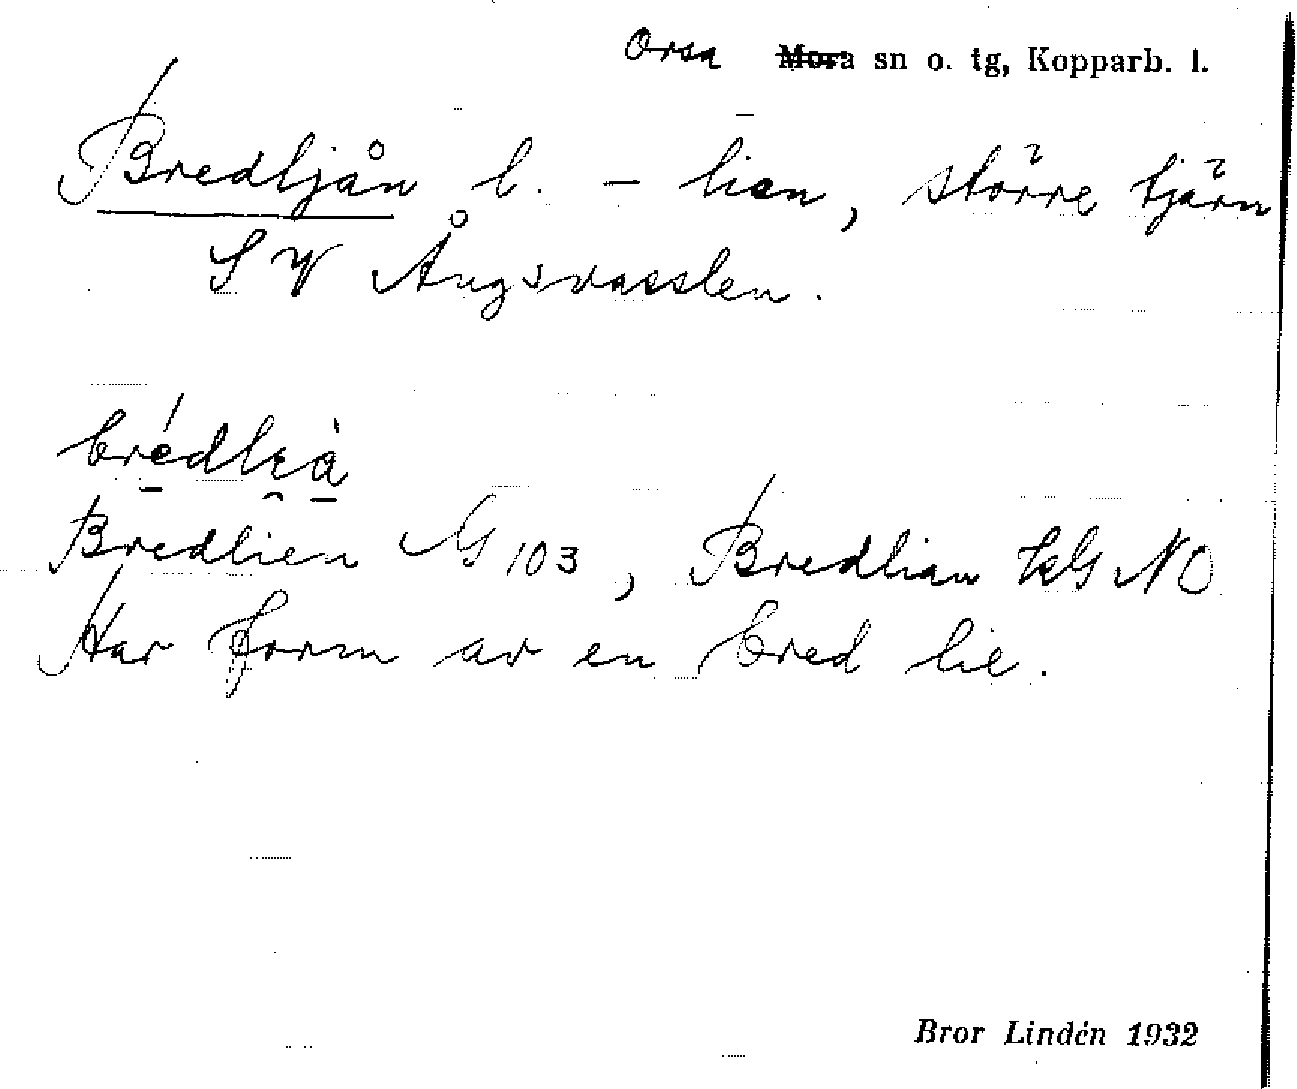 Orsa Mora sn o. tg, Kopparb. l.
Bredljån l. – lien, större tjärn
SV Ångsvasslen.
Bredlien G 103, Bredlian NO
Har form av en bred lie.
Bror Lindén 1932